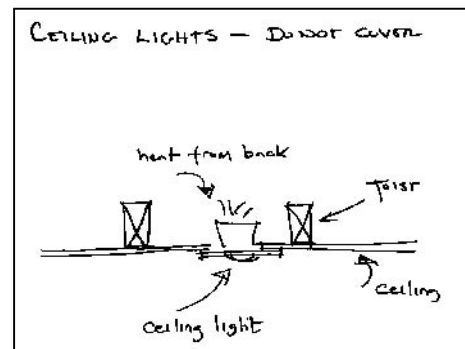 CEILING LIGHTS – DO NOT COVER
heat from back
JOIST
ceiling
ceiling light